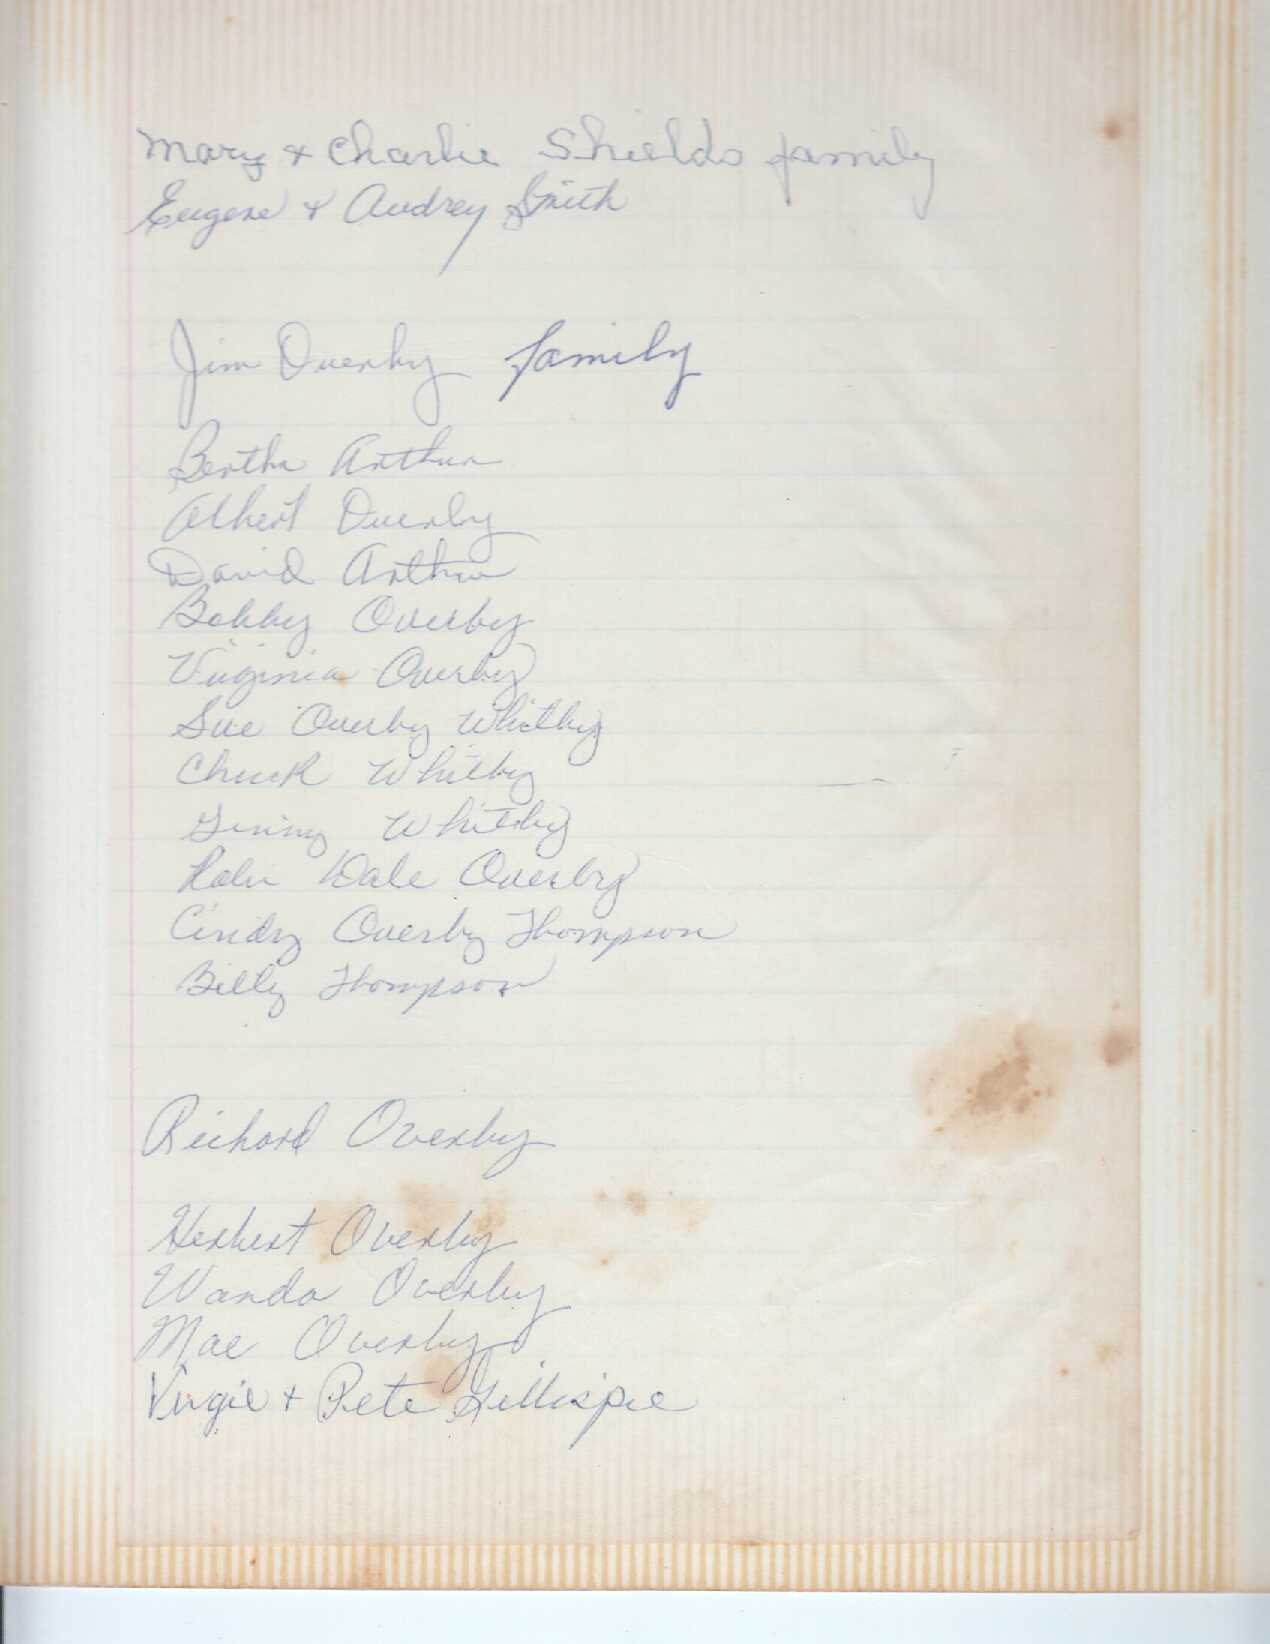 Mary & Charlie Shields family
Eugene & Audrey Smith
Jim Overby family
Bertha Arthur
Albert Overby
David Arthur
Bobby Overby
Virginia Overby
Sue Overby Whitby
Chuck Whitby
Ginny Whitby
Robin Dale Overby
Cindy Overby Thompson
Billy Thompson
Richard Overby
Herbert Overby
Wanda Overby
Mae Overby
Virgie & Pete Gillispie